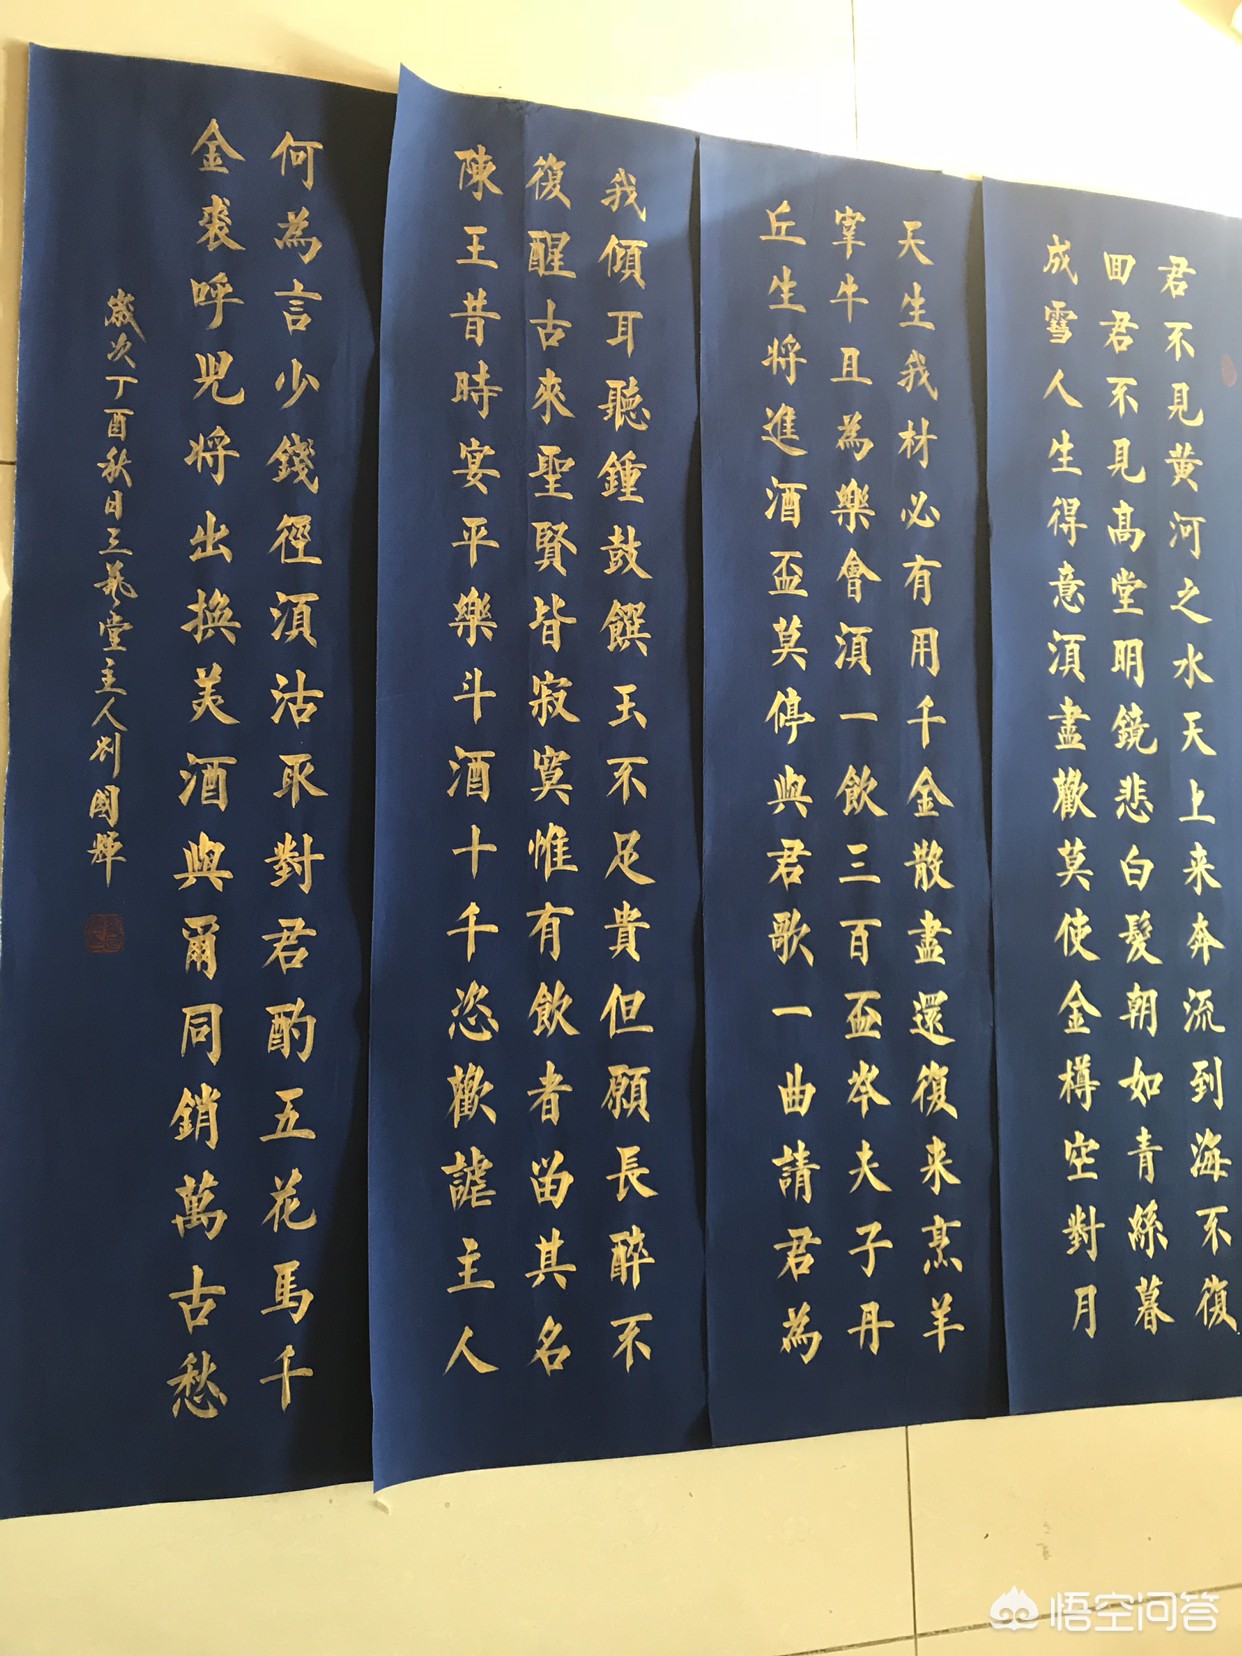 君不見黄河之水天上来奔流到海不復
回君不見高堂明鏡悲白髮朝如青絲暮
成雪人生得意須盡歡莫使金樽空對月
天生我材必有用千金散盡還復来烹羊
宰牛且為樂會須一飲三百盃岑夫子丹
丘生將進酒盃莫停與君歌一曲請君為
我傾耳聽鍾鼓饌玉不足貴但願長醉不
復醒古來聖賢皆寂寞惟有飲者留其名
陳王昔時宴平樂斗酒十千恣歡謔主人
何為言少錢徑須沽取對君酌五花馬千
金裘呼兒將出換美酒與爾同銷萬古愁
歲次丁酉秋日三苑堂主人刘國輝
悟空问答